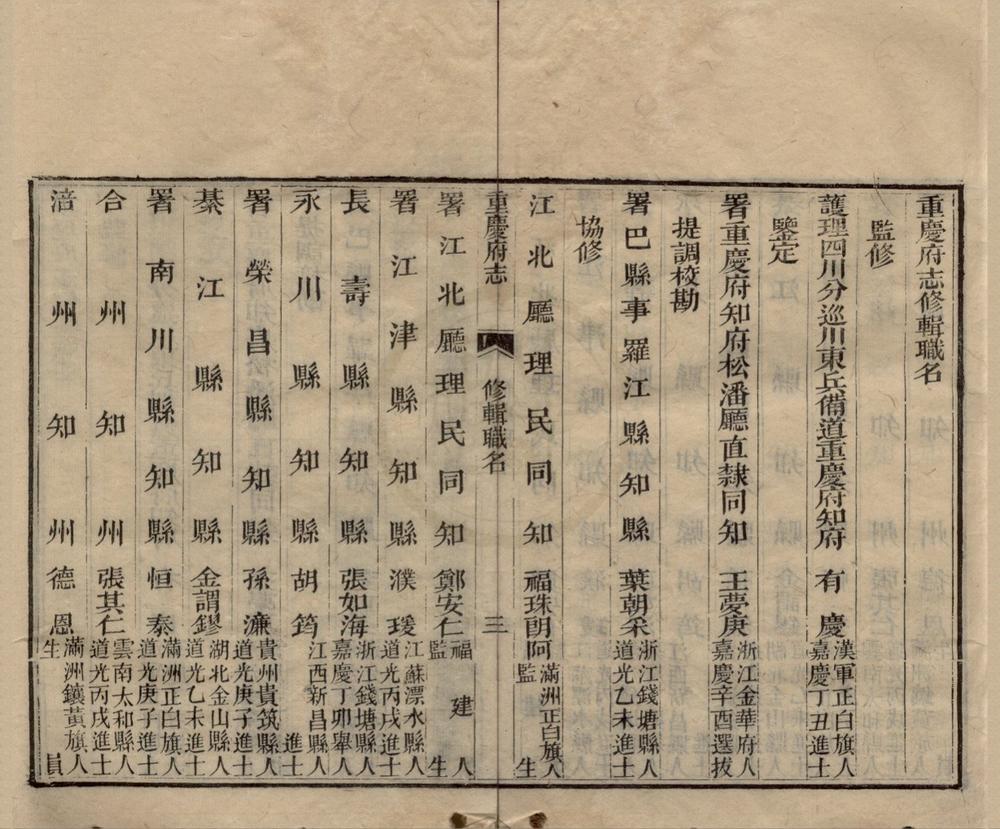 重慶府志修輯職名
監修
護理四川分巡川東兵備道重慶府知府 有慶 漢軍正白旗人 嘉慶丁丑進士
鑒定
署重慶府知府松潘廳直隸同知 王夢庚 浙江金華府人 嘉慶辛酉選拔
提調校勘
署巴縣事羅江縣知縣 葉朝采 浙江錢塘縣人 道光乙未進士
協修
江北廳理民同知 福珠朗阿 滿洲正白旗人 監生
重慶府志 修輯職名 三
署江北廳理民同知 鄭安仁 福建人 監生
署江津縣知縣 濮瑗 江蘇漂水縣人 道光丙戌進士
長壽縣知縣 張如海 浙江錢塘縣人 嘉慶丁卯舉人
永川縣知縣 胡筠 江西新昌縣人 進士
署榮昌縣知縣 孫濂 貴州貴筑縣人 道光庚子進士
綦江縣知縣 金謂鏐 湖北金山縣人 道光乙未進士
署南川縣知縣 恒泰 滿洲正白旗人 道光庚子進士
合州知州 張其仁 雲南太和縣人 道光丙戌進士
涪州知州 德恩 滿洲鑲黃旗人 生員